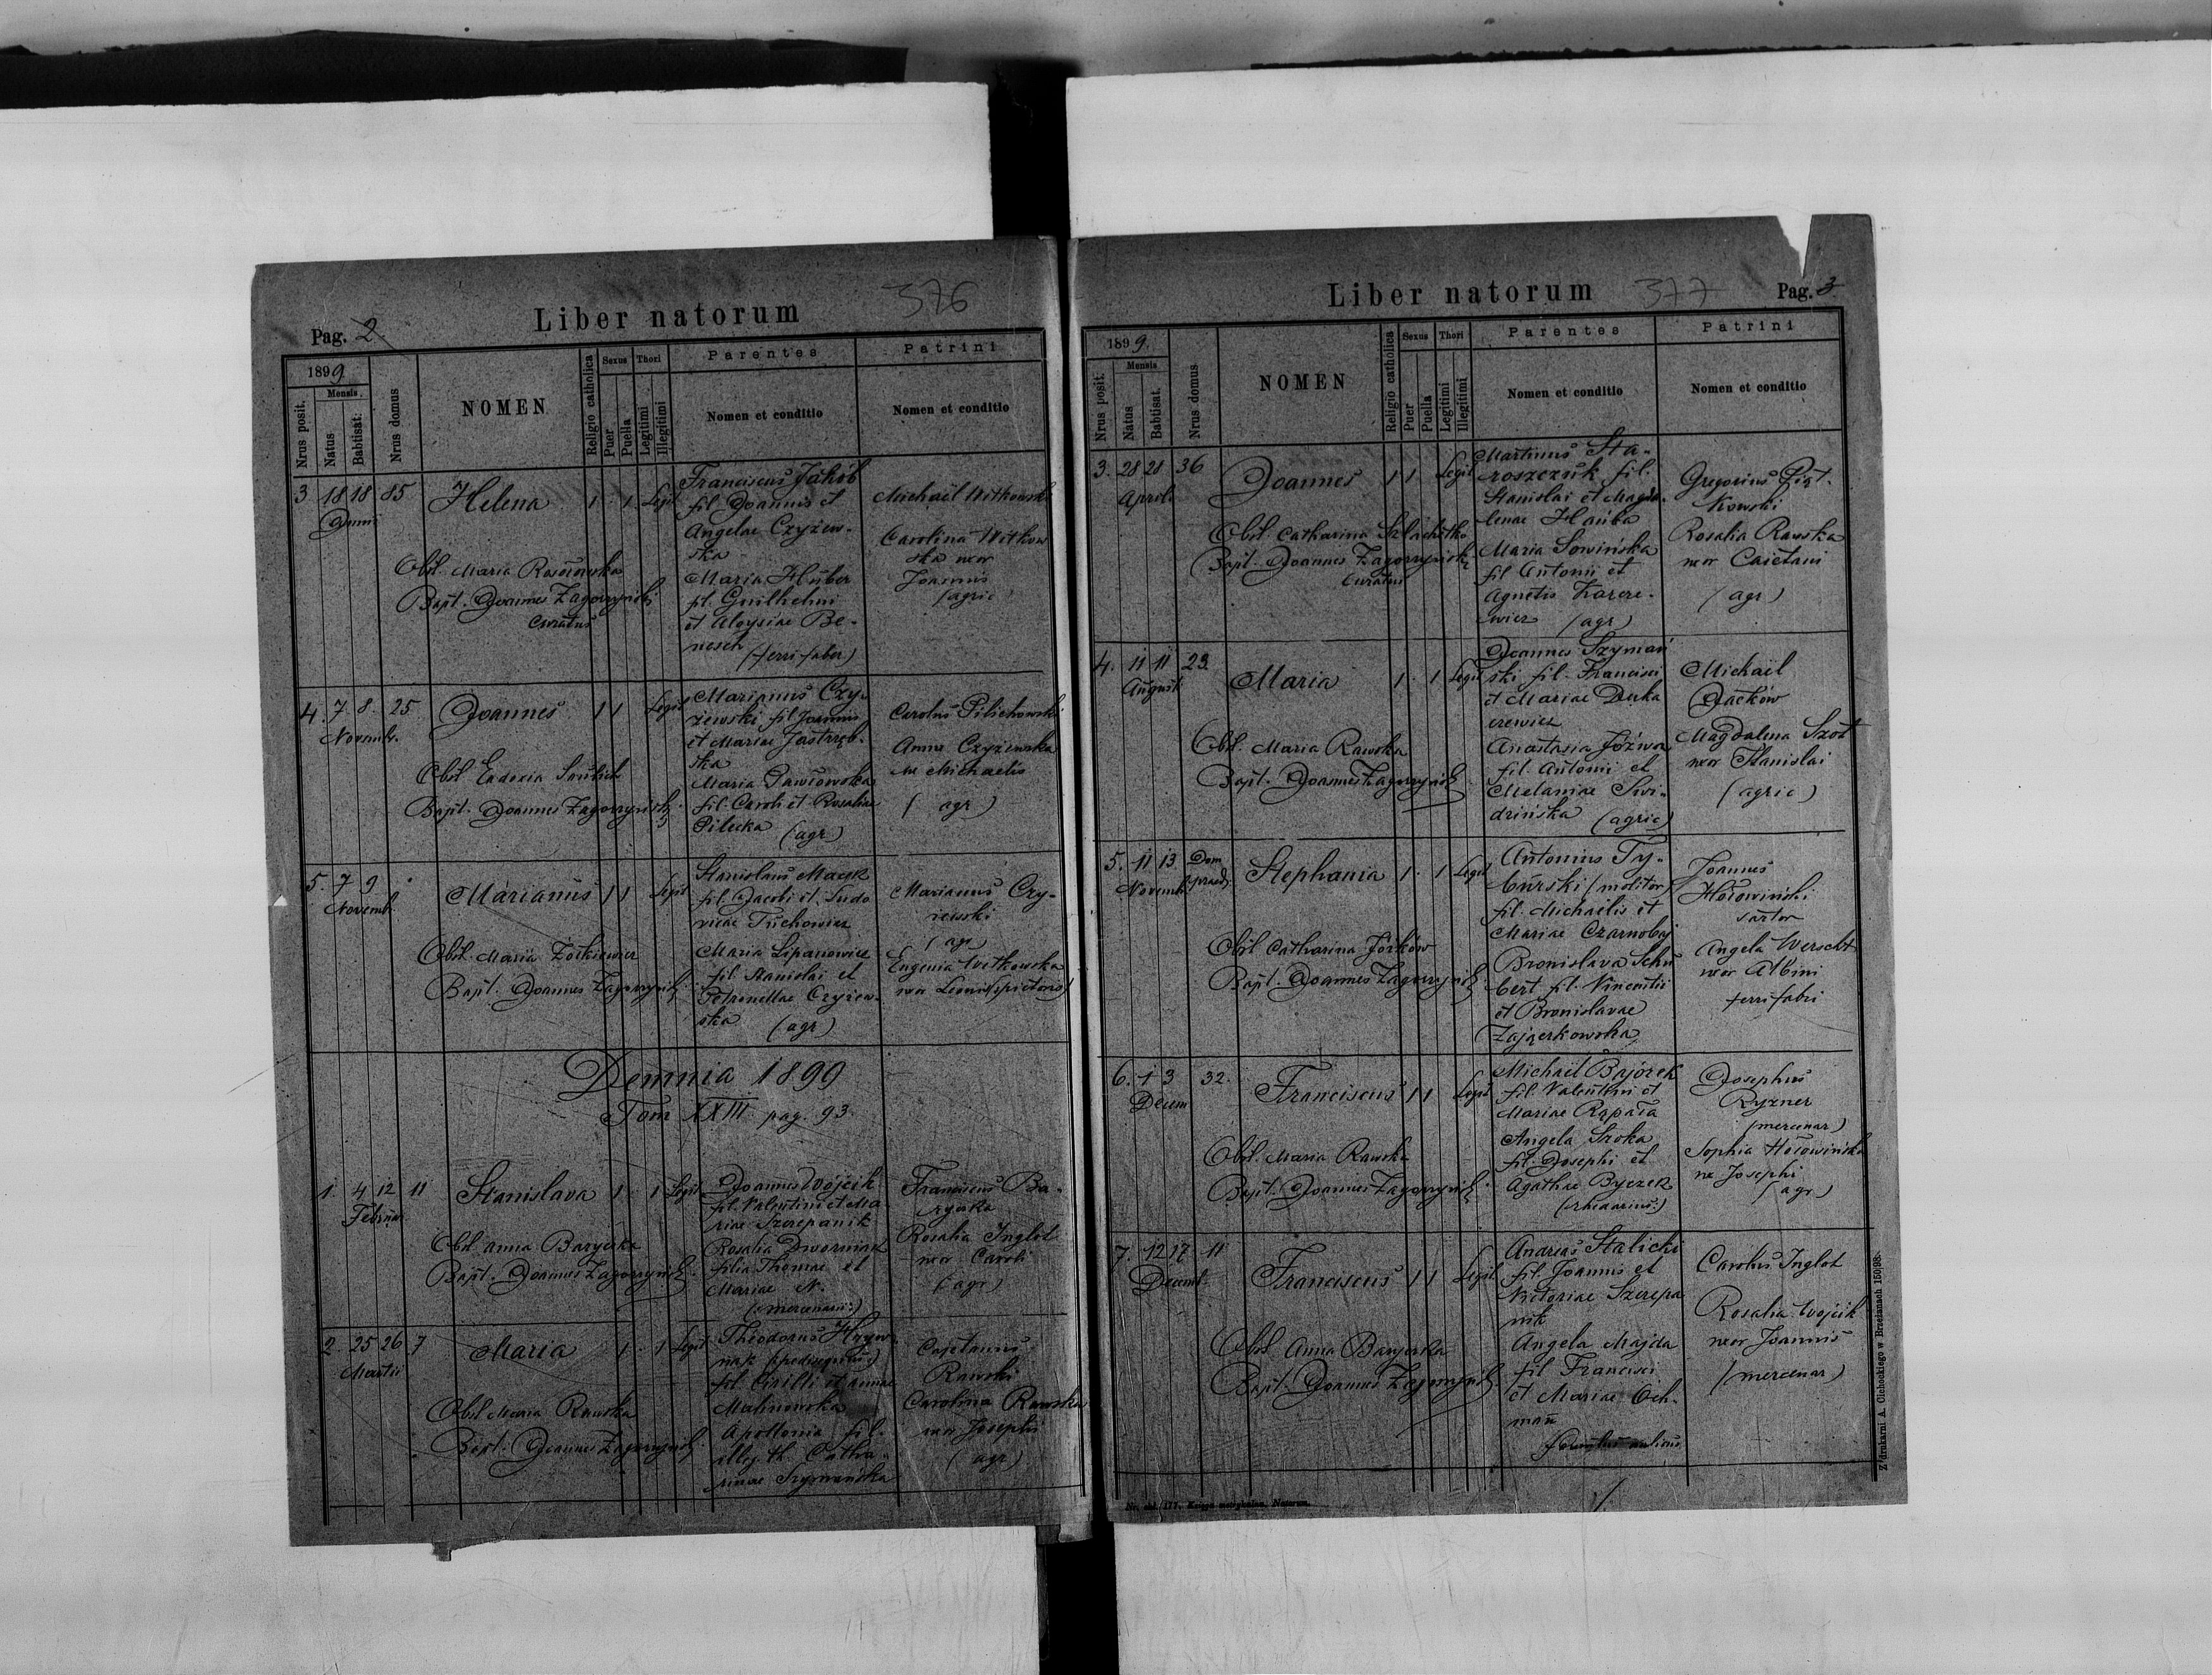 376
Liber natorum
Pag. 2.
1899.
Nrus posit.
Mensis
Natus
Babtisat.
Nrus domus
NOMEN
Religio catholica
Sexus
Puer
Puella
Thori
Legitimi
Illegitimi
Parentes
Nomen et conditio
Patrini
Nomen et conditio
3 18 18 85 Helena 1 1 Legit
Junii
Obst. Maria
Bapt. Joannes Zagorzyński
Curatus
Franciscus Jakób
fil. Joannis et
Angelae Czyżew-
ska
Maria Huber
fil. Guilhelmi
et Aloysiae Be-
nesch
(ferrifaber)
Michaël Witkowski
Carolina Witkow
ska uxor
Joannis
(agric)
4. 7 8. 25 Joannes 1 1 Legit
Novemb.
Obst Eudoxia
Bapt. Joannes Zagorzyński
Marianus Czy-
żewski fil Joannis
et Mariae Jastrzęb-
ska
Maria Pawłowska
fil. Caroli et Rosaliae
Pilecka (agr)
Carolus Pilichowski
Anna Czyżewska
ux Michaelis
(agr)
5. 7 9 Marianus 1 1 Legit
Novemb.
Obst. Maria Żółkiewicz
Bapt. Joannes Zagorzyński
Stanislaus Macyk
fil. Jacobi et Ludo
vicae Tichowicz
Maria Lipanowicz
fil. Stanislai et
Petronellae Czyżew-
ska (agr)
Marianus Czy-
żewski
(agr)
Eugenia Witkowska
uxor Leonis (pictoris)
Demnia 1899
Tom XXIII pag. 93.
1. 4 12 11 Stanislava 1 1 Legit
Februar
Obst. Anna Baryczka
Bapt. Joannes Zagorzyński
Joannes Wojcik
fil. Valentini et Ma
riae Szczepanik
Rosalia Dworniak
filia Thomae et
Mariae N.
(mercenarii)
Franciscus Ba-
ryczka
Rosalia Inglot
uxor Caroli
(agr)
2. 25 26 7 Maria 1 1 Legit
Martii
Obst Maria Rawska
Bapt. Joannes Zagorzyński
Theodorus Hryw
nak (pedisequus)
fil. Cirilli et Annae
Malinowska
Apollonia fil.
illeg. th. Catha-
rinae Szymańska
Cajetanus
Rawski
Carolina Rawska
uxor Josephi
(agr)
Liber natorum
377
Pag. 3
1899.
Nrus posit.
Mensis
Natus
Babtisat.
Nrus domus
NOMEN
Religio catholica
Sexus
Puer
Puella
Thori
Legitimi
Illegitimi
Parentes
Nomen et conditio
Patrini
Nomen et conditio
3. 28 28 36 Joannes 1 1 Legit
April.
Obst Catharina Szlachetko
Bapt. Joannes Zagorzyński
Curatus
Martinus Sta-
roszczuk fil.
Stanislai et Magda-
lenae Hańba
Maria Sowińska
fil Antonii et
Agnetis Karcze-
wicz (agr)
Gregorius Piąt-
kowski
Rosalia Rawska
uxor Caietani
(agr)
4. 11 11 23. Maria 1 1 Legit
August
Obst. Maria Rawska
Bapt. Joannes Zagorzyński
Joannes Szymań
ski fil. Francisci
et Mariae Duka
czewicz
Anastasia Józwa
fil. Antonii et
Melaniae Swi-
dzińska (agric)
Michaël
Jacków
Magdalena Szot
uxor Stanislai
(agric)
5. 11 13 Dom. praed. Stephania 1 1 Legit
Novemb.
Obst Catharina Józków
Bapt. Joannes Zagorzyński
Antonius Ty-
burski (molitor)
fil. Michaëlis et
Mariae Czarnobaj
Bronislava Schu
bert fil. Vincentii
et Bronislavae
Zajączkowska
Joannes
Hołowiński
sartor
Angela Werscht
uxor Albini
ferrifabri
6. 1 3 32. Franciscus 1 1 Legit
Decem
Obst. Maria Rawska
Bapt. Joannes Zagorzyński
Michaël Bajorek
fil. Valentini et
Mariae Rąpała
Angela Sroka
fil. Josephi et
Agathae Byczek
(rhedarius)
Josephus
Ryzner
(mercenar)
Sophia Hołowińska
ux Josephi
(agr)
7. 12 17 11 Franciscus 1 1 Legit
Decemb.
Obst Anna Baryczka
Bapt. Joannes Zagorzyński
Andreas Stalicki
fil. Joannis et
Victoriae Szczepa
nik
Angela Majda
fil Francisci
et Mariae Och-
man
famulus aulicus
Carolus Inglot
Rosalia Wojcik
uxor Joannis
(mercenar)
Nr. skł. 177. Księga metrykalna. Natorum.
Z drukarni A. Cichockiego w Brzeżanach 150/98.